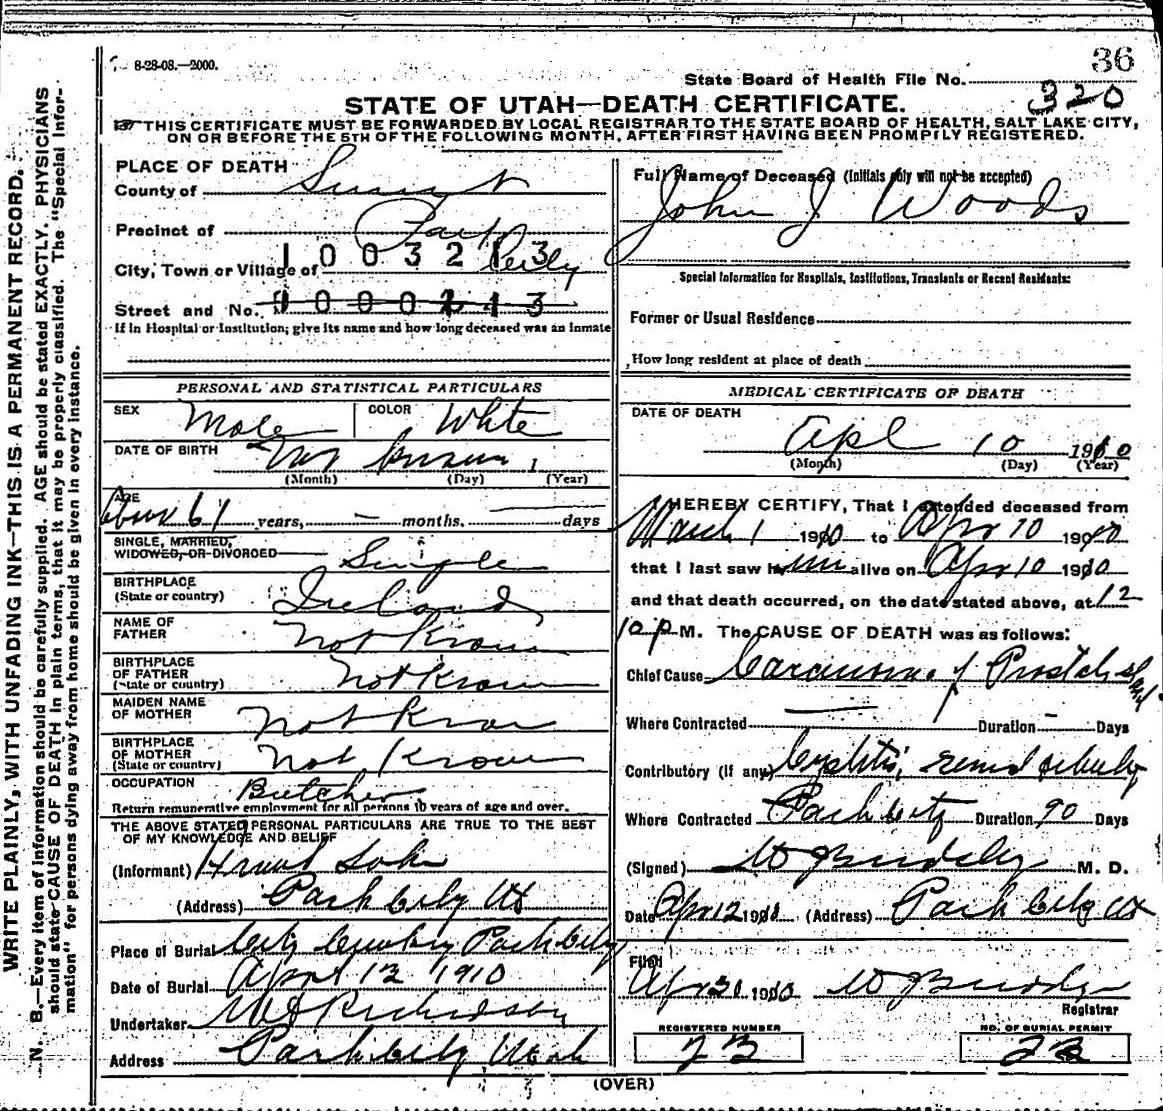 8-28-08.—2000.
36
State Board of Health File No. 320
STATE OF UTAH—DEATH CERTIFICATE.
THIS CERTIFICATE MUST BE FORWARDED BY LOCAL REGISTRAR TO THE STATE BOARD OF HEALTH, SALT LAKE CITY,
ON OR BEFORE THE 5TH OF THE FOLLOWING MONTH, AFTER FIRST HAVING BEEN PROMPTLY REGISTERED.
WRITE PLAINLY, WITH UNFADING INK—THIS IS A PERMANENT RECORD.
N. B.—Every item of information should be carefully supplied. AGE should be stated EXACTLY. PHYSICIANS
should state CAUSE OF DEATH in plain terms, that it may be properly classified. The "Special Infor-
mation" for persons dying away from home should be given in every instance.
PLACE OF DEATH
County of Summit
Precinct of Park
1003213
City, Town or Village of City
Street and No. 1000213
If in Hospital or Institution; give its name and how long deceased was an inmate
PERSONAL AND STATISTICAL PARTICULARS
SEX Male COLOR White
DATE OF BIRTH Not Known 1
(Month) (Day) (Year)
AGE About 61 years, — months, — days
SINGLE, MARRIED,
WIDOWED, OR DIVORCED Single
BIRTHPLACE
(State or country) Ireland
NAME OF
FATHER Not Known
BIRTHPLACE
OF FATHER
(State or country) Not Known
MAIDEN NAME
OF MOTHER Not Known
BIRTHPLACE
OF MOTHER
(State or country) Not Known
OCCUPATION Butcher
Return remunerative employment for all persons 10 years of age and over.
THE ABOVE STATED PERSONAL PARTICULARS ARE TRUE TO THE BEST
OF MY KNOWLEDGE AND BELIEF
(Informant)
(Address) Park City Ut
Place of Burial City Cemetery Park City
Date of Burial April 12 1910
Undertaker Richardson
Address Park City Utah
Full Name of Deceased (Initials only will not be accepted)
John J Woods
Special Information for Hospitals, Institutions, Transients or Recent Residents:
Former or Usual Residence
How long resident at place of death
MEDICAL CERTIFICATE OF DEATH
DATE OF DEATH
Apl 10 1910
(Month) (Day) (Year)
I HEREBY CERTIFY, That I attended deceased from
March 1 1910 to Apr 10 1910
that I last saw him alive on Apr 10 1910
and that death occurred, on the date stated above, at 12
10 P M. The CAUSE OF DEATH was as follows:
Chief Cause Carcinoma of Prostate Gland
Where Contracted — Duration — Days
Contributory (if any) Cystitis,
Where Contracted Park City Duration 90 Days
(Signed) M. D.
Date Apr 12 1910 (Address) Park City Ut
Filed
Apr 30 1910
Registrar
REGISTERED NUMBER
23
NO. OF BURIAL PERMIT
23
(OVER)